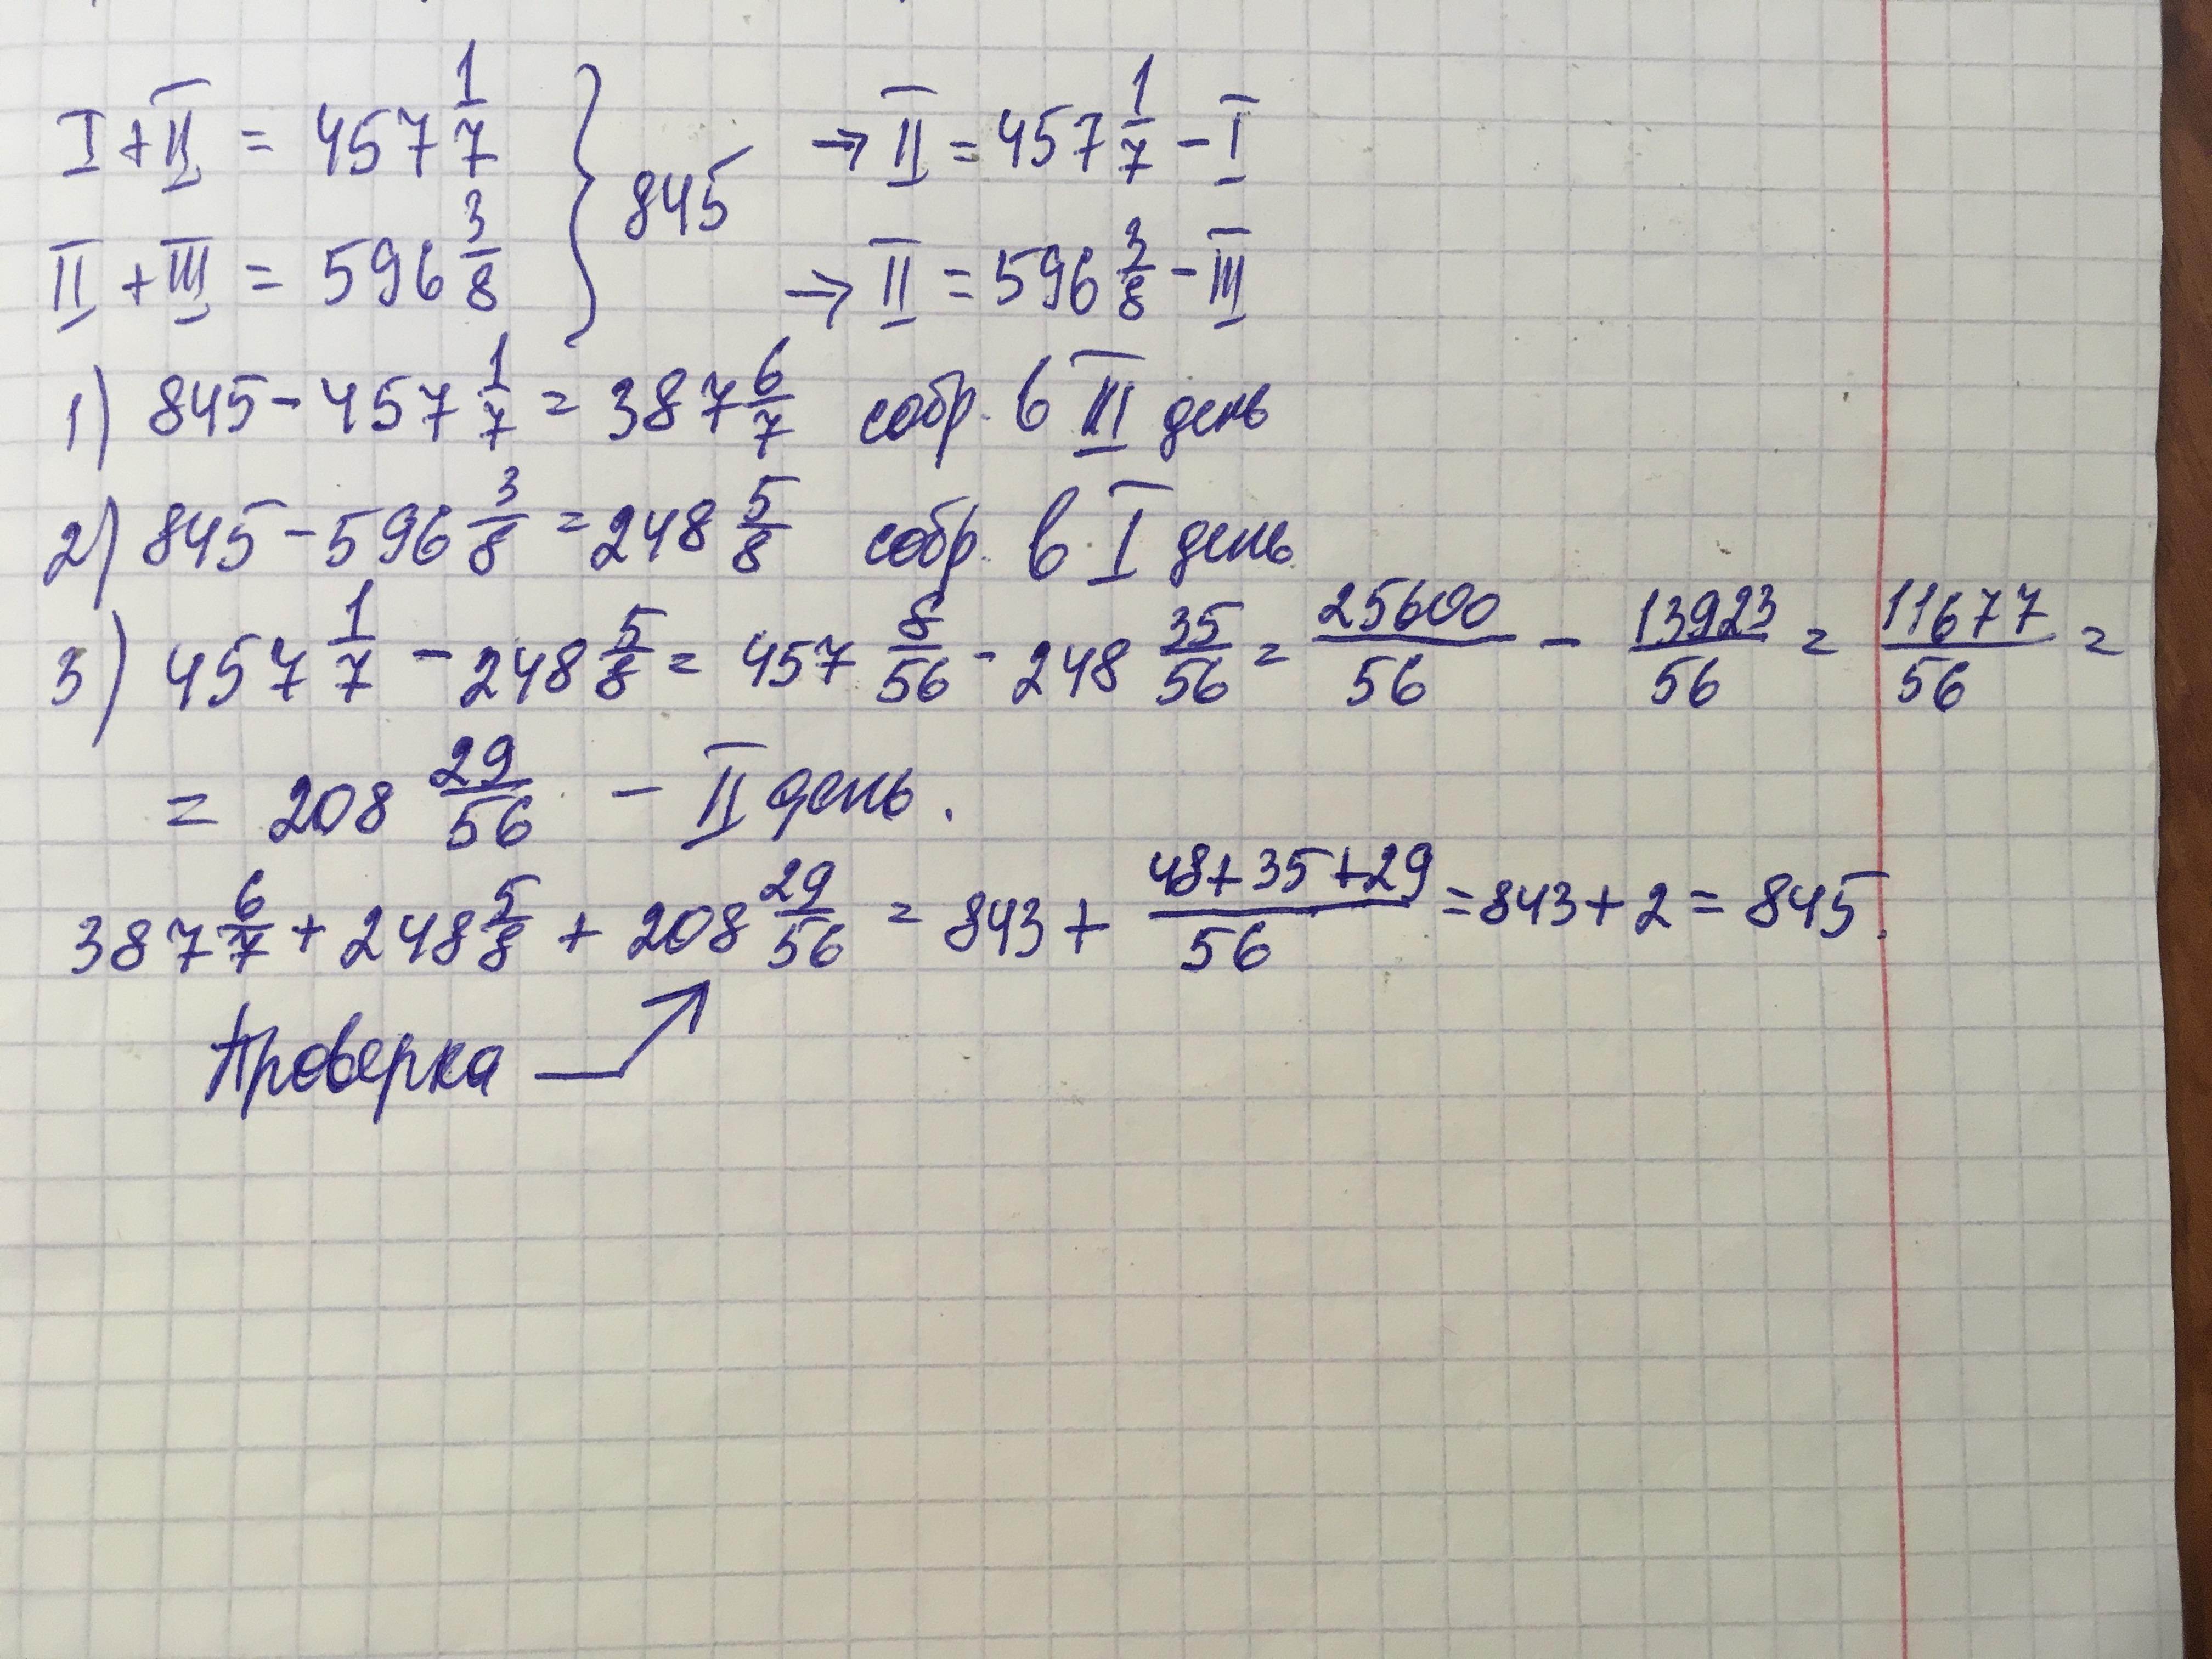 I + II = 457 1/7 } 845 → II = 457 1/7 - I
II + III = 596 3/8 → II = 596 3/8 - III
1) 845 - 457 1/7 = 387 6/7 собр. в III день
2) 845 - 596 3/8 = 248 5/8 собр. в I день
3) 457 1/7 - 248 5/8 = 457 8/56 - 248 35/56 = 25600/56 - 13923/56 = 11677/56 =
= 208 29/56 - II день.
387 6/7 + 248 5/8 + 208 29/56 = 843 + (48+35+29)/56 = 843 + 2 = 845.
Проверка